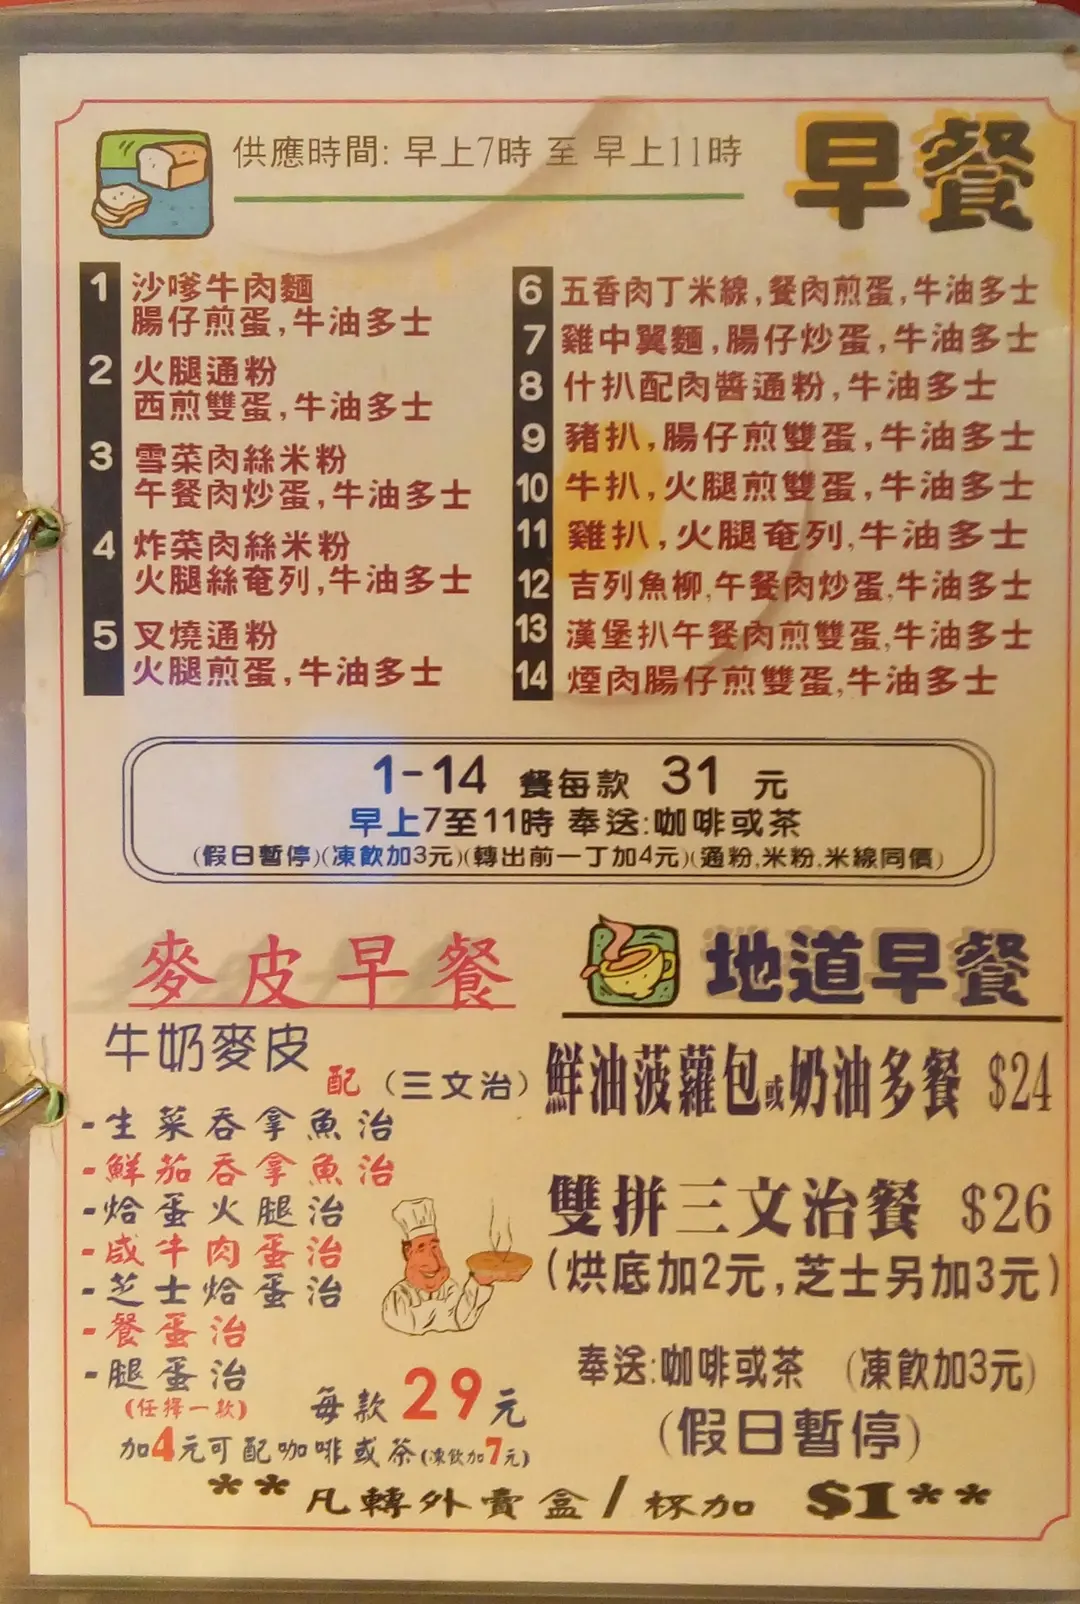 供應時間: 早上7時 至 早上11時
早餐
1 沙嗲牛肉麵
腸仔煎蛋,牛油多士
2 火腿通粉
西煎雙蛋,牛油多士
3 雪菜肉絲米粉
午餐肉炒蛋,牛油多士
4 炸菜肉絲米粉
火腿絲奄列,牛油多士
5 叉燒通粉
火腿煎蛋,牛油多士
6 五香肉丁米線,餐肉煎蛋,牛油多士
7 雞中翼麵,腸仔炒蛋,牛油多士
8 什扒配肉醬通粉,牛油多士
9 豬扒,腸仔煎雙蛋,牛油多士
10 牛扒,火腿煎雙蛋,牛油多士
11 雞扒,火腿奄列,牛油多士
12 吉列魚柳,午餐肉炒蛋,牛油多士
13 漢堡扒午餐肉煎雙蛋,牛油多士
14 煙肉腸仔煎雙蛋,牛油多士
1-14 餐每款 31 元
早上7至11時 奉送:咖啡或茶
(假日暫停)(凍飲加3元)(轉出前一丁加4元)(通粉,米粉,米線同價)
麥皮早餐
牛奶麥皮
配(三文治)
-生菜吞拿魚治
-鮮茄吞拿魚治
-烚蛋火腿治
-咸牛肉蛋治
-芝士烚蛋治
-餐蛋治
-腿蛋治
(任擇一款)
每款29元
加4元可配咖啡或茶(凍飲加7元)
地道早餐
鮮油菠蘿包或奶油多餐 $24
雙拼三文治餐 $26
(烘底加2元,芝士另加3元)
奉送:咖啡或茶 (凍飲加3元)
(假日暫停)
**凡轉外賣盒/杯加 $1**